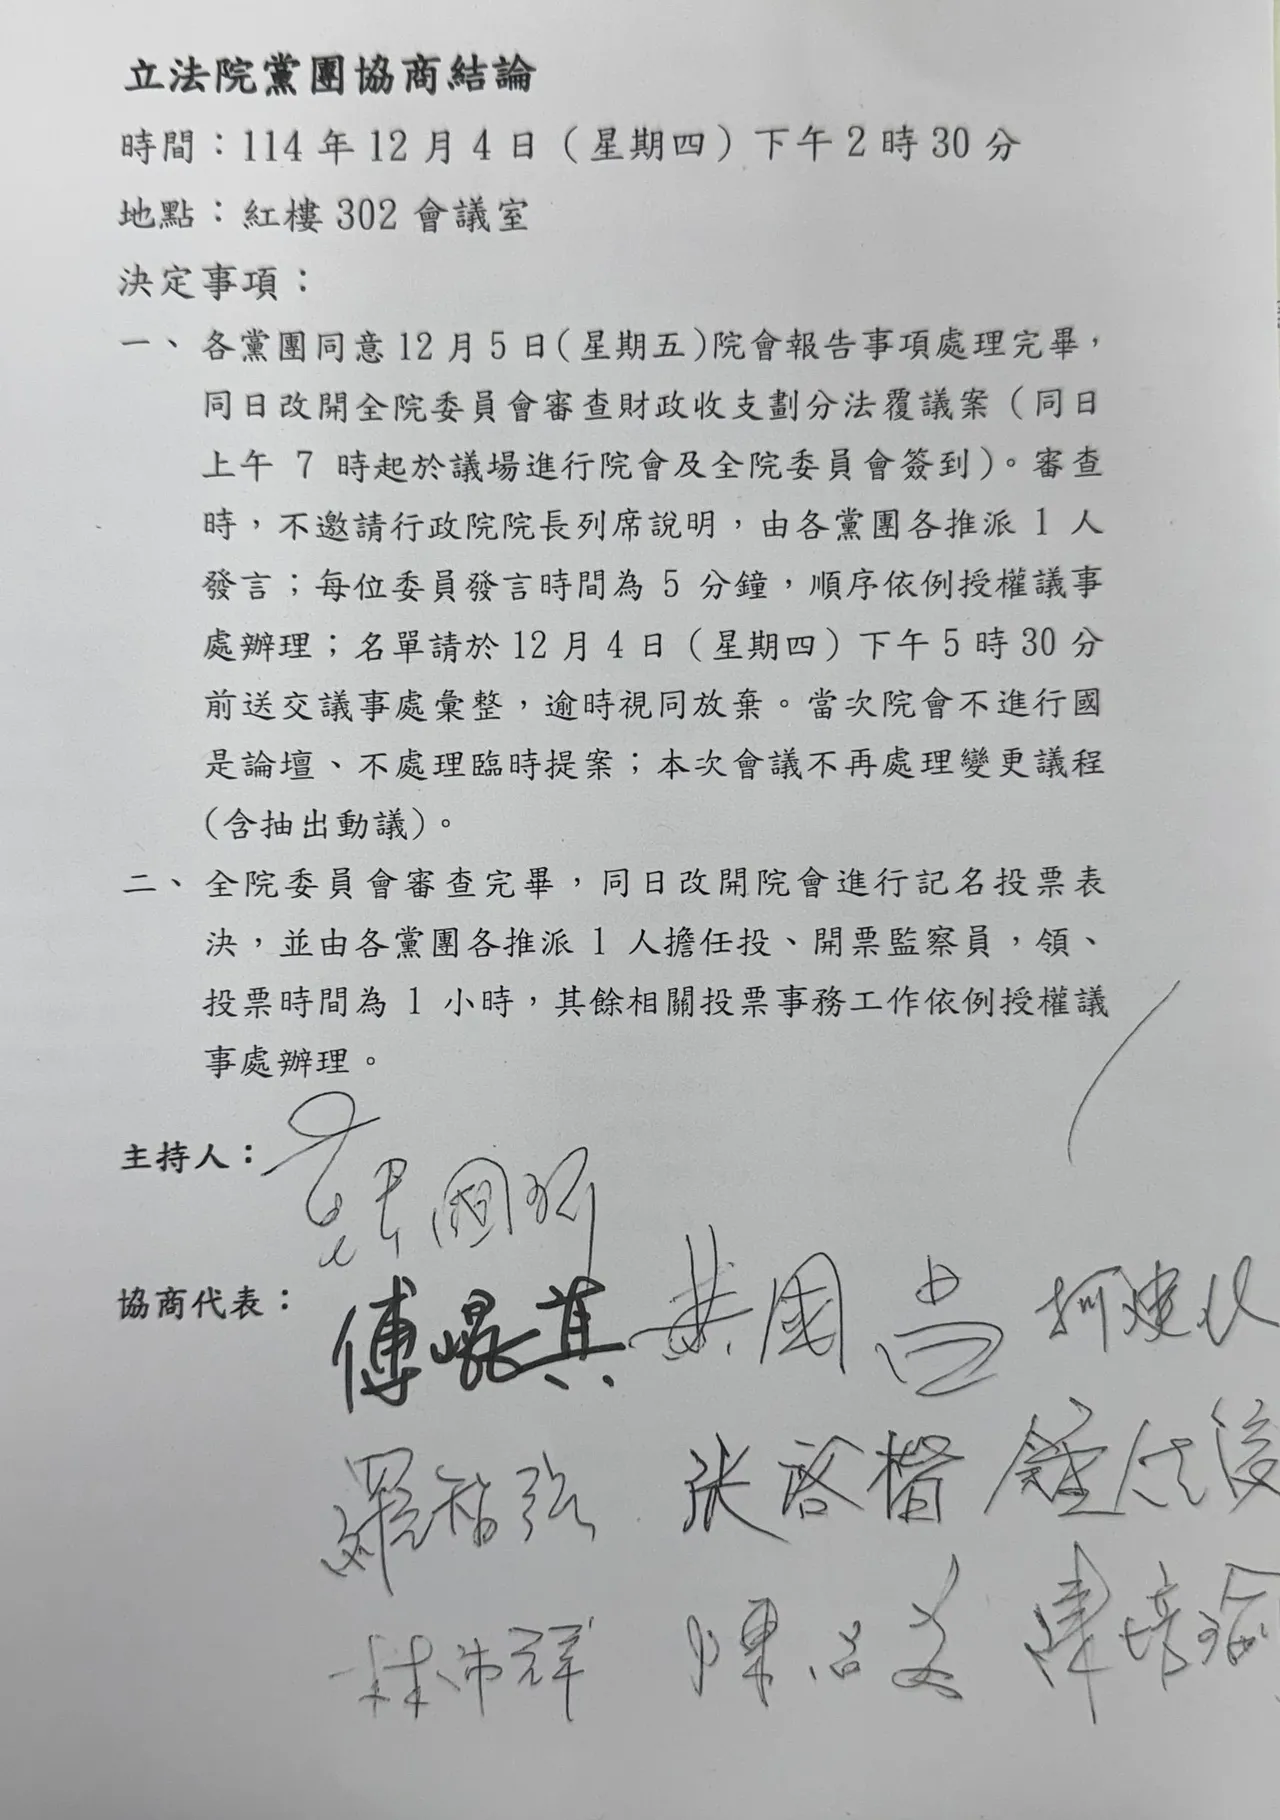 立法院黨團協商結論
時間：114年12月4日（星期四）下午2時30分
地點：紅樓302會議室
決定事項：
一、各黨團同意12月5日(星期五)院會報告事項處理完畢，
同日改開全院委員會審查財政收支劃分法覆議案（同日
上午 7 時起於議場進行院會及全院委員會簽到)。審查
時，不邀請行政院院長列席說明，由各黨團各推派 1 人
發言；每位委員發言時間為 5 分鐘，順序依例授權議事
處辦理；名單請於12月4日（星期四）下午5時30分
前送交議事處彙整，逾時視同放棄。當次院會不進行國
是論壇、不處理臨時提案；本次會議不再處理變更議程
(含抽出動議)。
二、全院委員會審查完畢，同日改開院會進行記名投票表
決，並由各黨團各推派 1 人擔任投、開票監察員，領、
投票時間為 1 小時，其餘相關投票事務工作依例授權議
事處辦理。
主持人：
韓國瑜
協商代表：
傅崐萁 黃國昌 柯建
羅智強 張啓楷 鍾佳
林沛祥 陳 陳培瑜